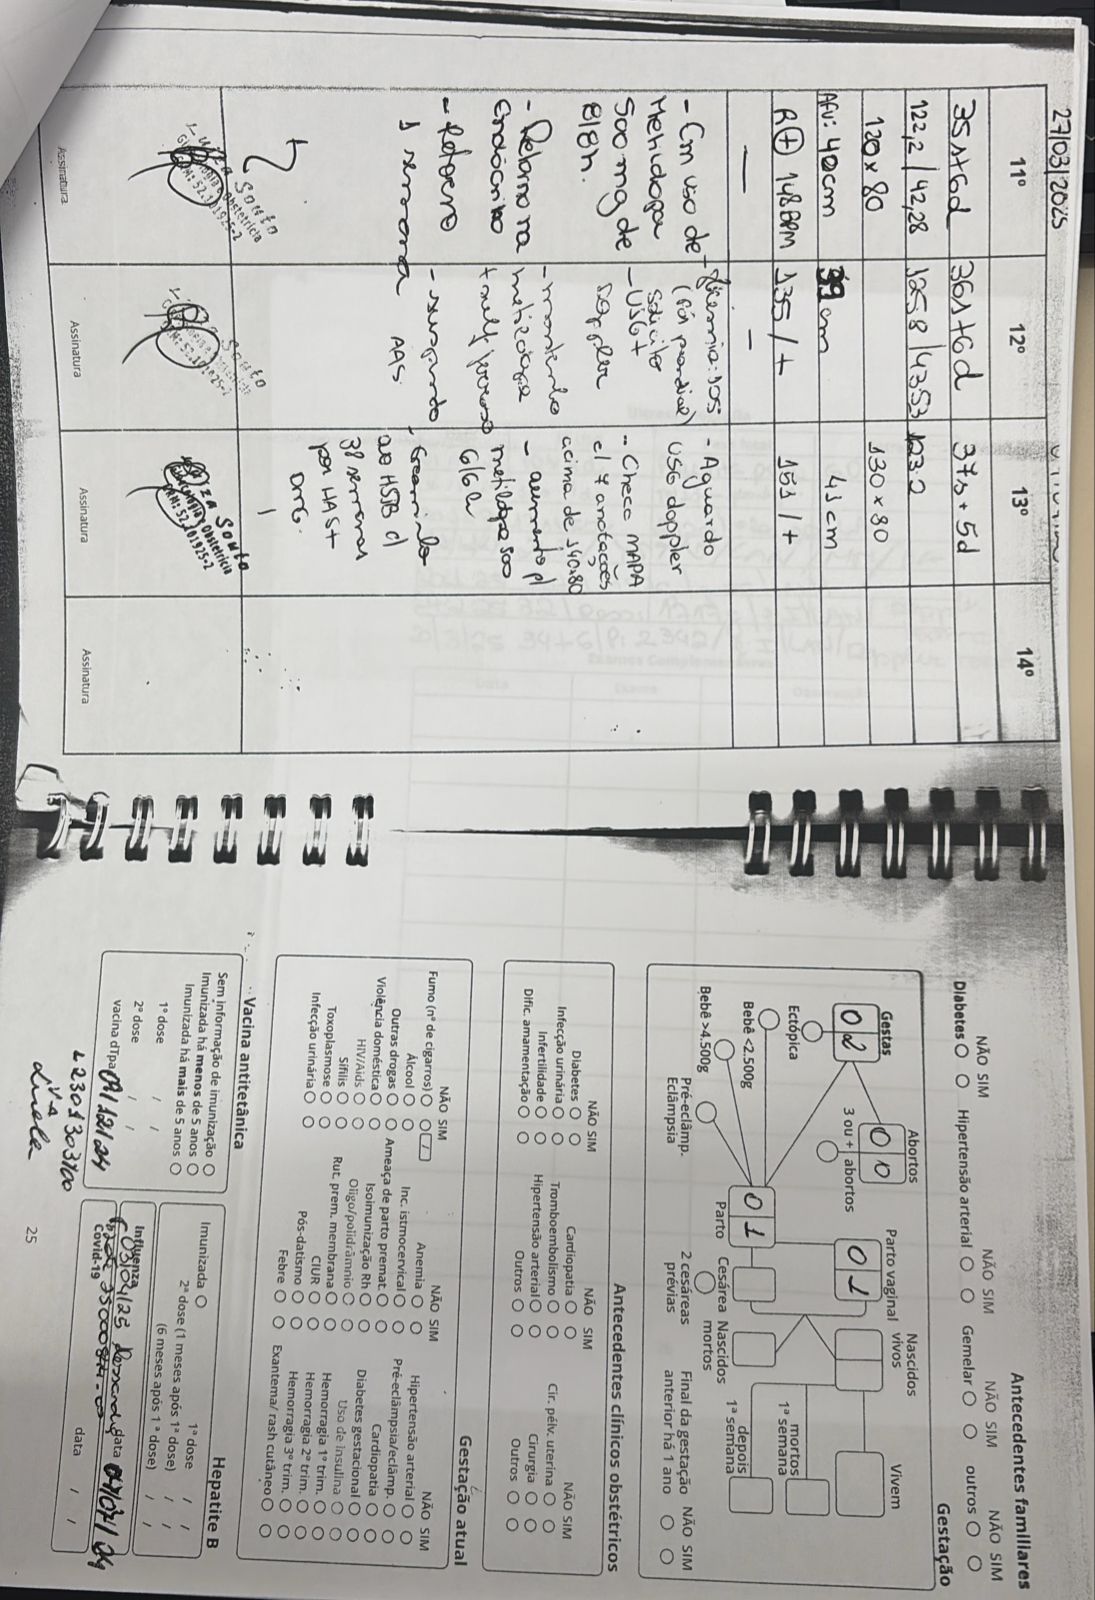 27/03/2025
11º
35s+6d
122,2 / 42,28
120 x 80
AFU: 40cm
R(+) 148BPM
—
- Em uso de
Metildopa
500mg de
8/8h.
- Retorno na
endócrino
- Retorno
1 semana
Assinatura
12º
36s+6d
125,8 / 43,53
39 cm
135 / +
-
- Glicemia: 105
(pós prandial)
- Solicito
USG +
Doppler
- mantenho
metildopa
- suspendo
AAS.
Assinatura
13º
37s + 5d
123,2
130 x 80
41 cm
151 / +
- Aguardo
USG doppler
- Checo MAPA
c/ 7 anotações
acima de 140x80
- aumento p/
metildopa 500
6/6h
- Encaminho
ao HSJB c/
38 semanas
por HAS+
DMG.
Assinatura
14º
Assinatura
Antecedentes familiares
NÃO SIM
Diabetes
NÃO SIM
Hipertensão arterial
NÃO SIM
Gemelar
NÃO SIM
outros
Gestação
Gestas
02
Abortos
00
3 ou + abortos
Parto vaginal
01
Nascidos vivos
Vivem
Ectópica
Bebê <2.500g
Bebê >4.500g
Pré-eclâmp.
Eclâmpsia
01
Parto
Cesárea
2 cesáreas
prévias
Nascidos
mortos
mortos
1ª semana
depois
1ª semana
Final da gestação
anterior há 1 ano
NÃO SIM
Antecedentes clínicos obstétricos
NÃO SIM
Diabetes
Infecção urinária
Infertilidade
Dific. amamentação
NÃO SIM
Cardiopatia
Tromboembolismo
Hipertensão arterial
Outros
NÃO SIM
Cir. pélv. uterina
Cirurgia
Outros
Gestação atual
NÃO SIM
Fumo (nº de cigarros)
Álcool
Outras drogas
Violência doméstica
HIV/Aids
Sífilis
Toxoplasmose
Infecção urinária
NÃO SIM
Anemia
Inc. istmocervical
Ameaça de parto premat.
Isoimunização Rh
Oligo/polidrâmnio
Rut. prem. membrana
CIUR
Pós-datismo
Febre
NÃO SIM
Hipertensão arterial
Pré-eclâmpsia/eclâmp.
Cardiopatia
Diabetes gestacional
Uso de insulina
Hemorragia 1º trim.
Hemorragia 2º trim.
Hemorragia 3º trim.
Exantema/ rash cutâneo
Vacina antitetânica
Sem informação de imunização
Imunizada há menos de 5 anos
Imunizada há mais de 5 anos
1ª dose / /
2ª dose / /
vacina dTpa 09/12/24
Hepatite B
Imunizada
1ª dose / /
2ª dose (1 meses após 1ª dose) / /
(6 meses após 1ª dose) / /
Influenza
03/04/25
data
Covid-19
data / /
25